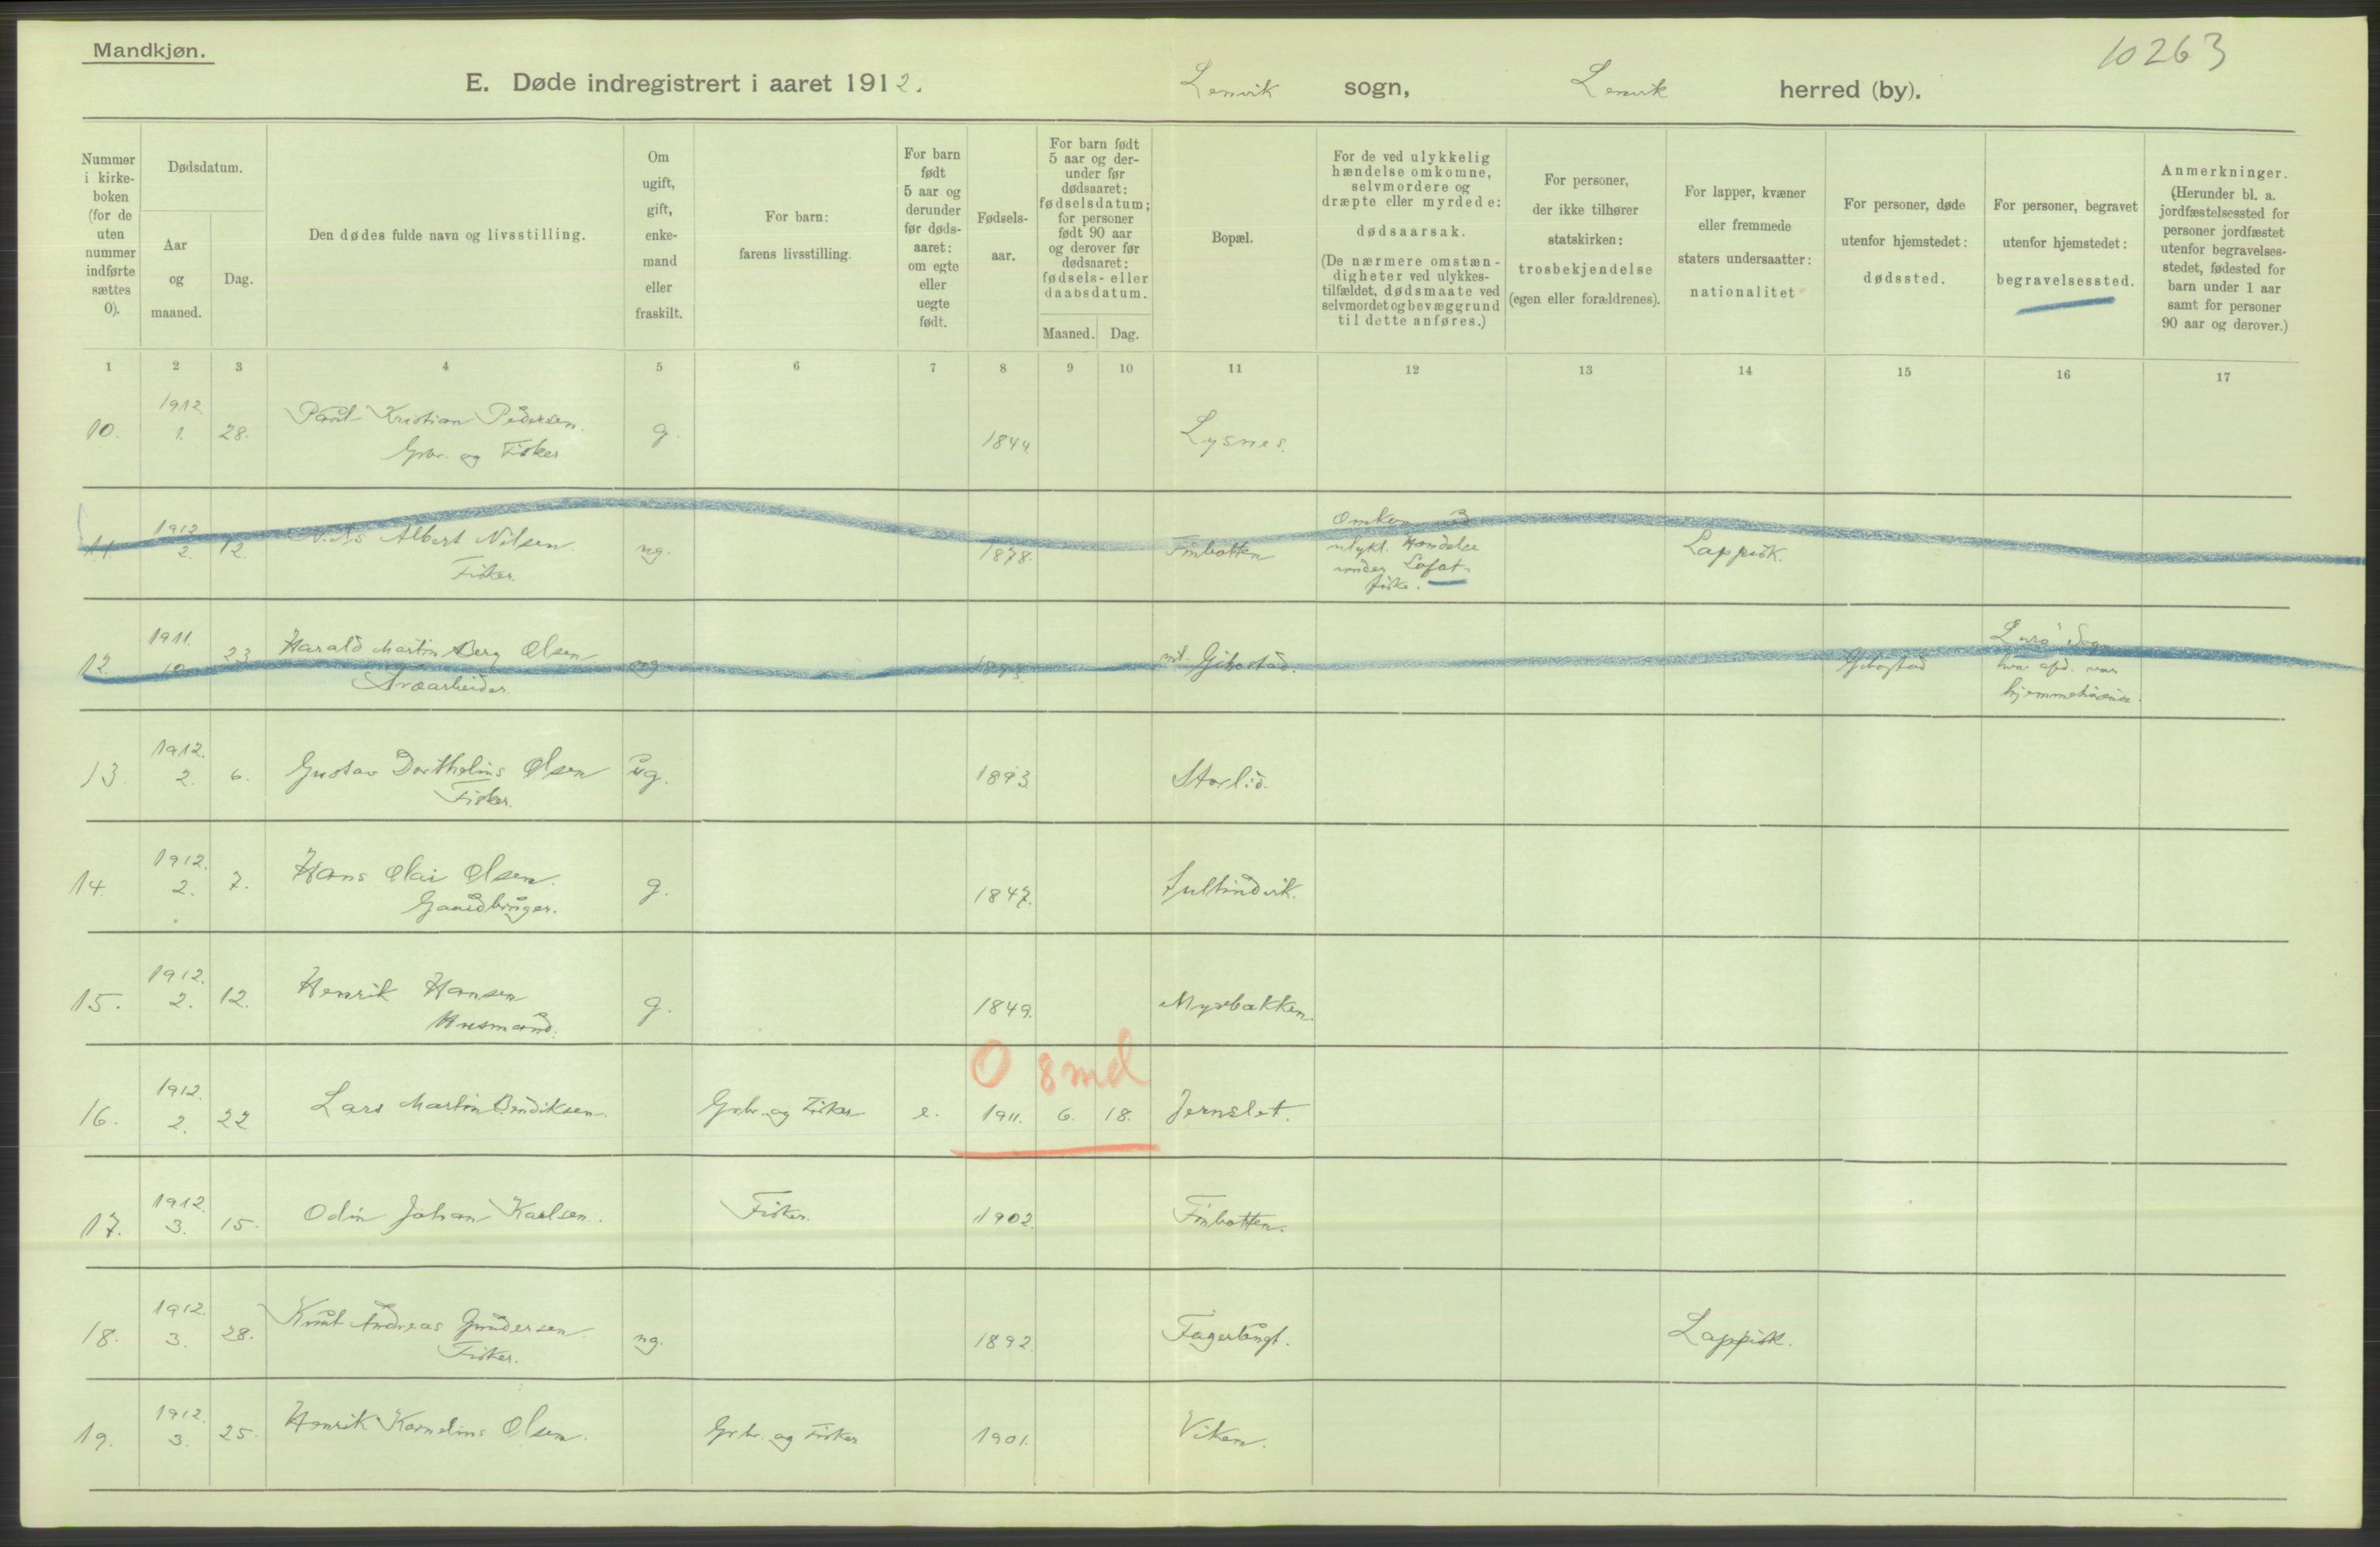 Mandkjøn.
10263
E. Døde indregistrert i aaret 1912. Lenvik sogn, Lenvik herred (by).
Nummer i kirke-boken (for de uten nummer indførte sættes 0).
Dødsdatum.
Aar og maaned.
Dag.
Den dødes fulde navn og livsstilling.
Om ugift, gift, enke-mand eller fraskilt.
For barn: farens livsstilling.
For barn født 5 aar og derunder før døds-aaret: om egte eller uegte født.
Fødsels-aar.
For barn født 5 aar og der-under før dødsaaret: fødselsdatum; for personer født 90 aar og derover før dødsaaret: fødsels- eller daabsdatum.
Maaned.
Dag.
Bopæl.
For de ved ulykkelig hændelse omkomne, selvmordere og dræpte eller myrdede: dødsaarsak. (De nærmere omstæn-digheter ved ulykkes-tilfældet, dødsmaate ved selvmordet og bevæggrund til dette anføres.)
For personer, der ikke tilhører statskirken: trosbekjendelse (egen eller forældrenes).
For lapper, kvæner eller fremmede staters undersaatter: nationalitet
For personer, døde utenfor hjemstedet: dødssted.
For personer, begravet utenfor hjemstedet: begravelsessted.
Anmerkninger. (Herunder bl. a. jordfæstelsessted for personer jordfæstet utenfor begravelses-stedet, fødested for barn under 1 aar samt for personer 90 aar og derover.)
1 2 3 4 5 6 7 8 9 10 11 12 13 14 15 16 17
10. 1912 1. 28. Paul Kristian Pedersen. g. 1844. Lysnes.
Gbr. og Fisker
11. 1912 2. 12. Nils Albert Nilsen. ug. 1878. Finbotten Omkom ved Lappisk.
Fisker. ulykl. Hændelse
under Lofot-
fiske.
12. 1911. 10. 23 Harald Martin Berg Olsen ug Gibostad. Gibostad Sogn
hvor afd. var
hjemmehørende.
13. 1912. 2. 6. Gustav Dorthelius Olsen ug. 1893 Storlid.
Fisker.
14. 1912. 2. 7. Hans Olai Olsen. g. 1847. Sultindvik.
Gaardbruger.
15. 1912. 2. 12. Henrik Hansen g. 1849. Myrbakken.
Husmand.
0 8 md
16. 1912. 2. 22 Lars Martin Bendiksen. Gbr. og Fisker e. 1911. 6. 18. Jernslet.
17. 1912. 3. 15. Odin Johan Karlsen. Fisker. 1902. Finbotten.
18. 1912. 3. 28. Knut Andreas Gundersen. ug. 1892. Lappisk.
Fisker.
19. 1912. 3. 25. Henrik Kornelius Olsen. Gbr. og Fisker 1901. Viken.